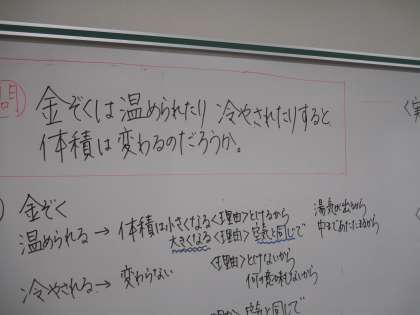 問
金ぞくは温められたり冷やされたりすると
体積は変わるのだろうか。
金ぞく
温められる→体積は小さくなる<理由>とけるから 湯気が出るから
大きくなる<理由>空気と同じで 中まであたたまるから
冷やされる→変わらない <理由>とけないから
何の意味もないから
空気と同じで